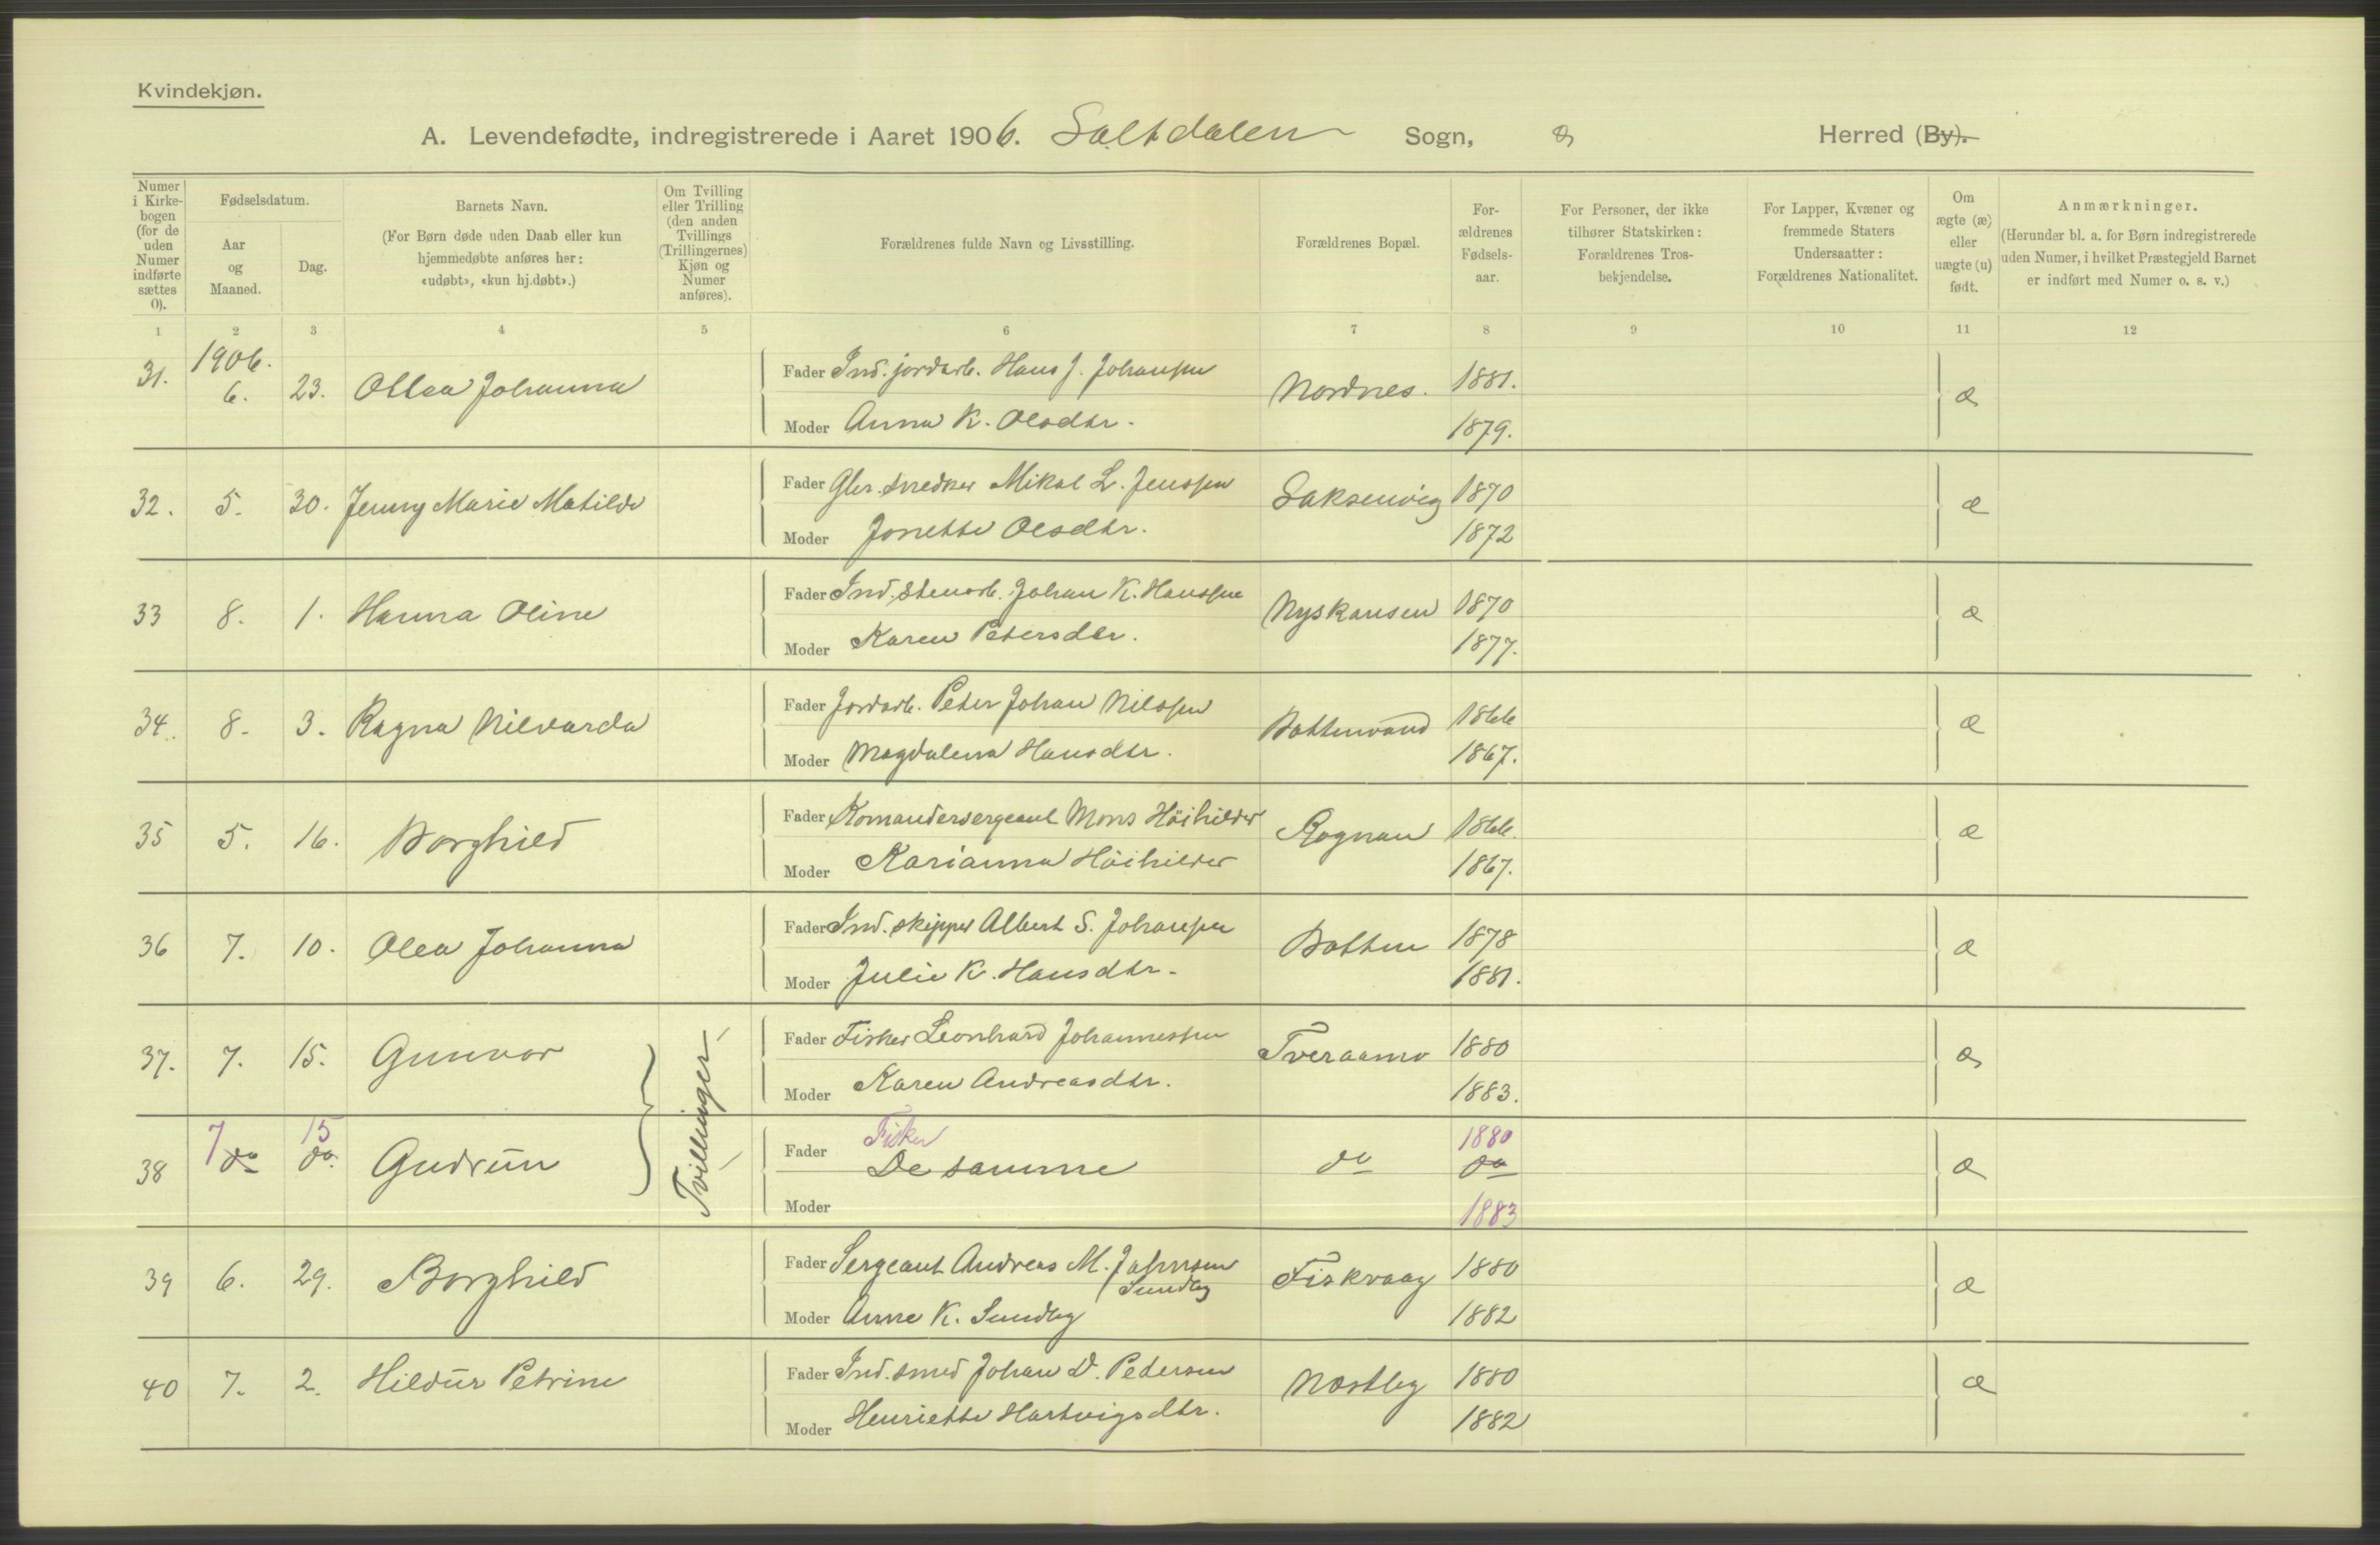 Kvindekjøn.
A. Levendefødte, indregistrerede i Aaret 1906. Saltdalen Sogn, Herred (By).
Numer i Kirke-bogen (for de uden Numer indførte sættes 0).
Fødselsdatum.
Aar og Maaned.
Dag.
Barnets Navn.
(For Børn døde uden Daab eller kun hjemmedøbte anføres her: «udøbt», «kun hj.døbt».)
Om Tvilling eller Trilling (den anden Tvillings (Trillingernes) Kjøn og Numer anføres).
Forældrenes fulde Navn og Livsstilling.
Forældrenes Bopæl.
For-ældrenes Fødsels-aar.
For Personer, der ikke tilhører Statskirken: Forældrenes Tros-bekjendelse.
For Lapper, Kvæner og fremmede Staters Undersaatter: Forældrenes Nationalitet.
Om ægte (æ) eller uægte (u) født.
Anmærkninger.
(Herunder bl. a. for Børn indregistrerede uden Numer, i hvilket Præstegjeld Barnet er indført med Numer o. s. v.)
1 2 3 4 5 6 7 8 9 10 11 12
1906.
31. 6. 23. Ottea Johanna Fader Ind. jordarb. Hans J. Johansen Nordnes. 1881. æ
Moder Anna K. Olsdtr. 1879.
32. 5. 30. Jenny Marie Matilde Fader Gbr. snedker Mikal L. Jenssen Saksenvig 1870 æ
Moder Jonette Olsdtr. 1872
33 8. 1. Hanna Oline Fader Ind. stenarb. Johan K. Hanssen Nyskansen 1870 æ
Moder Karen Petersdtr. 1877.
34. 8. 3. Ragna Nilvarda Fader Jordarb. Peter Johan Nilssen Bottenvand 1866 æ
Moder Magdalena Hansdtr. 1867.
35 5. 16. Borghild Fader Komandersergeant Mons Höihilder Rognan 1866. æ
Moder Karianna Höihilder 1867.
36 7. 10. Olea Johanna Fader Ind. skipper Albert S. Johansen Botten 1878 æ
Moder Julie K. Hansdtr. 1881.
37. 7. 15. Gunvor Tvillinger Fader Fisker Leonhard Johannessen Tveraamo 1880 æ
Moder Karen Andreasdtr. 1883.
7 15 Fisker 1880
38 do do. Gudrun Fader De samme do do æ
Moder 1883
39 6. 29. Borghild Fader Sergeant Andreas M. Jahnsen Fiskvaag 1880 æ
Sundby
Moder Anne K. Sundby 1882
40 7. 2. Hildur Petrine Fader Ind. smed Johan D. Pedersen Næstby 1880 æ
Moder Henriette Hartvigsdtr. 1882